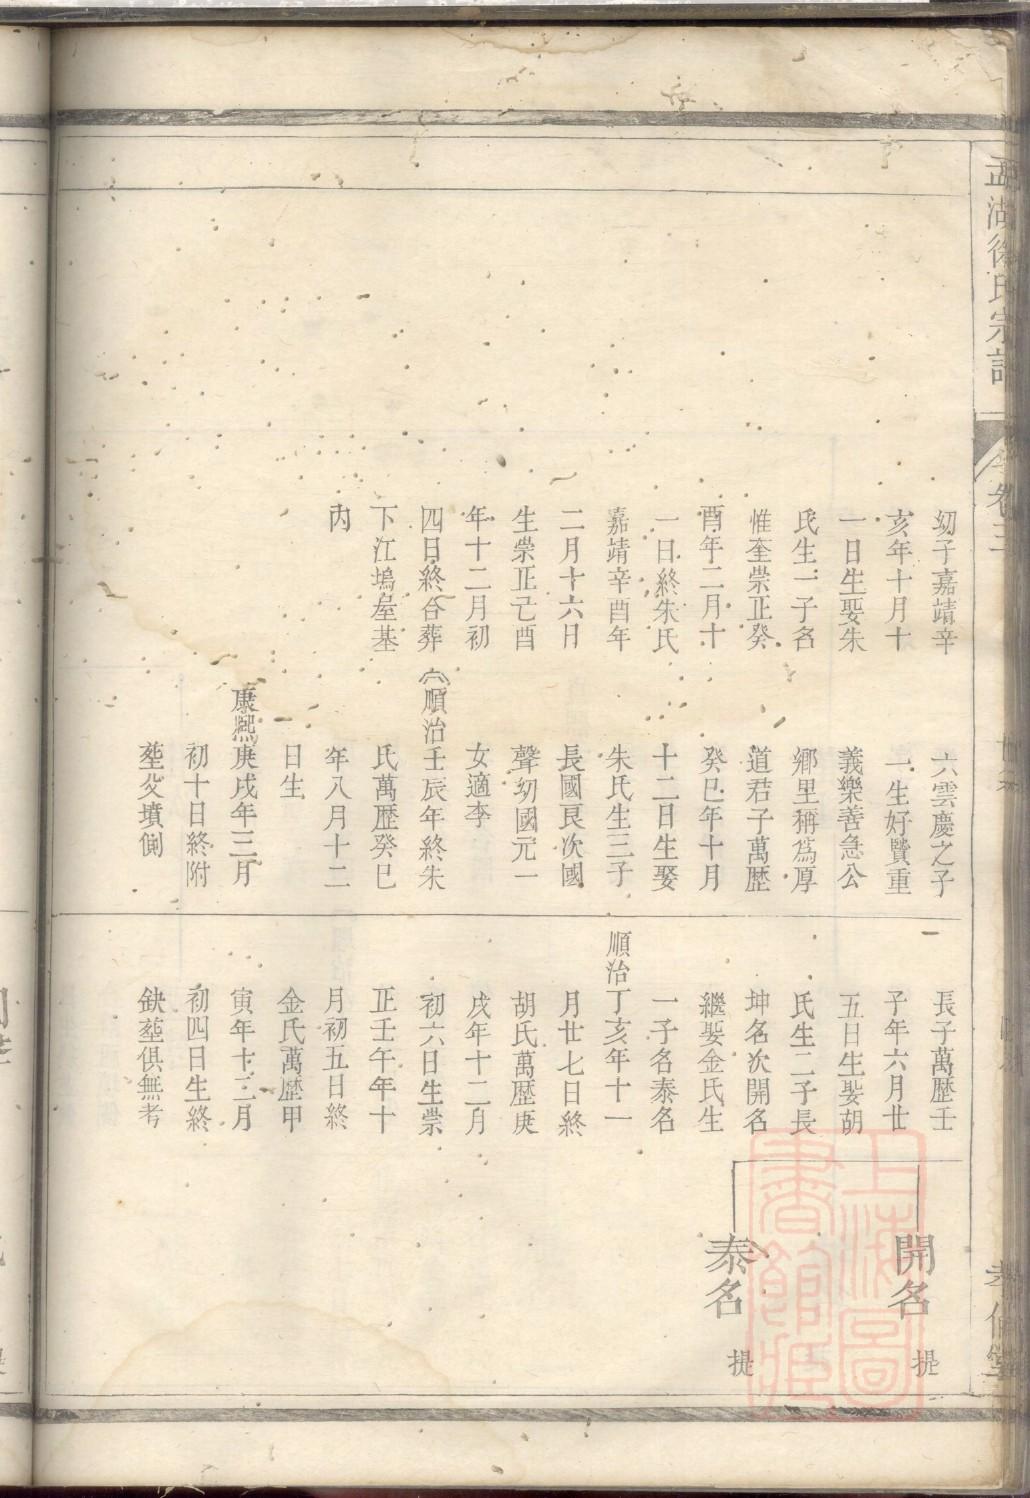 湖徐氏宗譜
卷三
幼子嘉靖辛
亥年十月十
一日生娶朱
氏生一子名
惟奎崇正癸
酉年二月十
一日終朱氏
嘉靖辛酉年
二月十六日
生崇正己酉
年十二月初
四日終合葬
下江塢屋基
內
六雲慶之子
一生好賢重
義樂善急公
鄉里稱爲厚
道君子萬歷
癸巳年十月
十二日生娶
朱氏生三子
長國良次國
聲幼國元一
女適李
順治壬辰年終朱
氏萬歷癸巳
年八月十二
日生
康熙庚戌年三月
初十日終附
塟父墳側
長子萬歷壬
子年六月廿
五日生娶胡
氏生二子長
坤名次開名
繼娶金氏生
一子名泰名
順治丁亥年十一
月廿七日終
胡氏萬歷庚
戌年十二月
初六日生崇
正壬午年十
月初五日終
金氏萬歷甲
寅年十二月
初四日生終
缺塟俱無考
開名 提
泰名 提
上海圖
書館藏